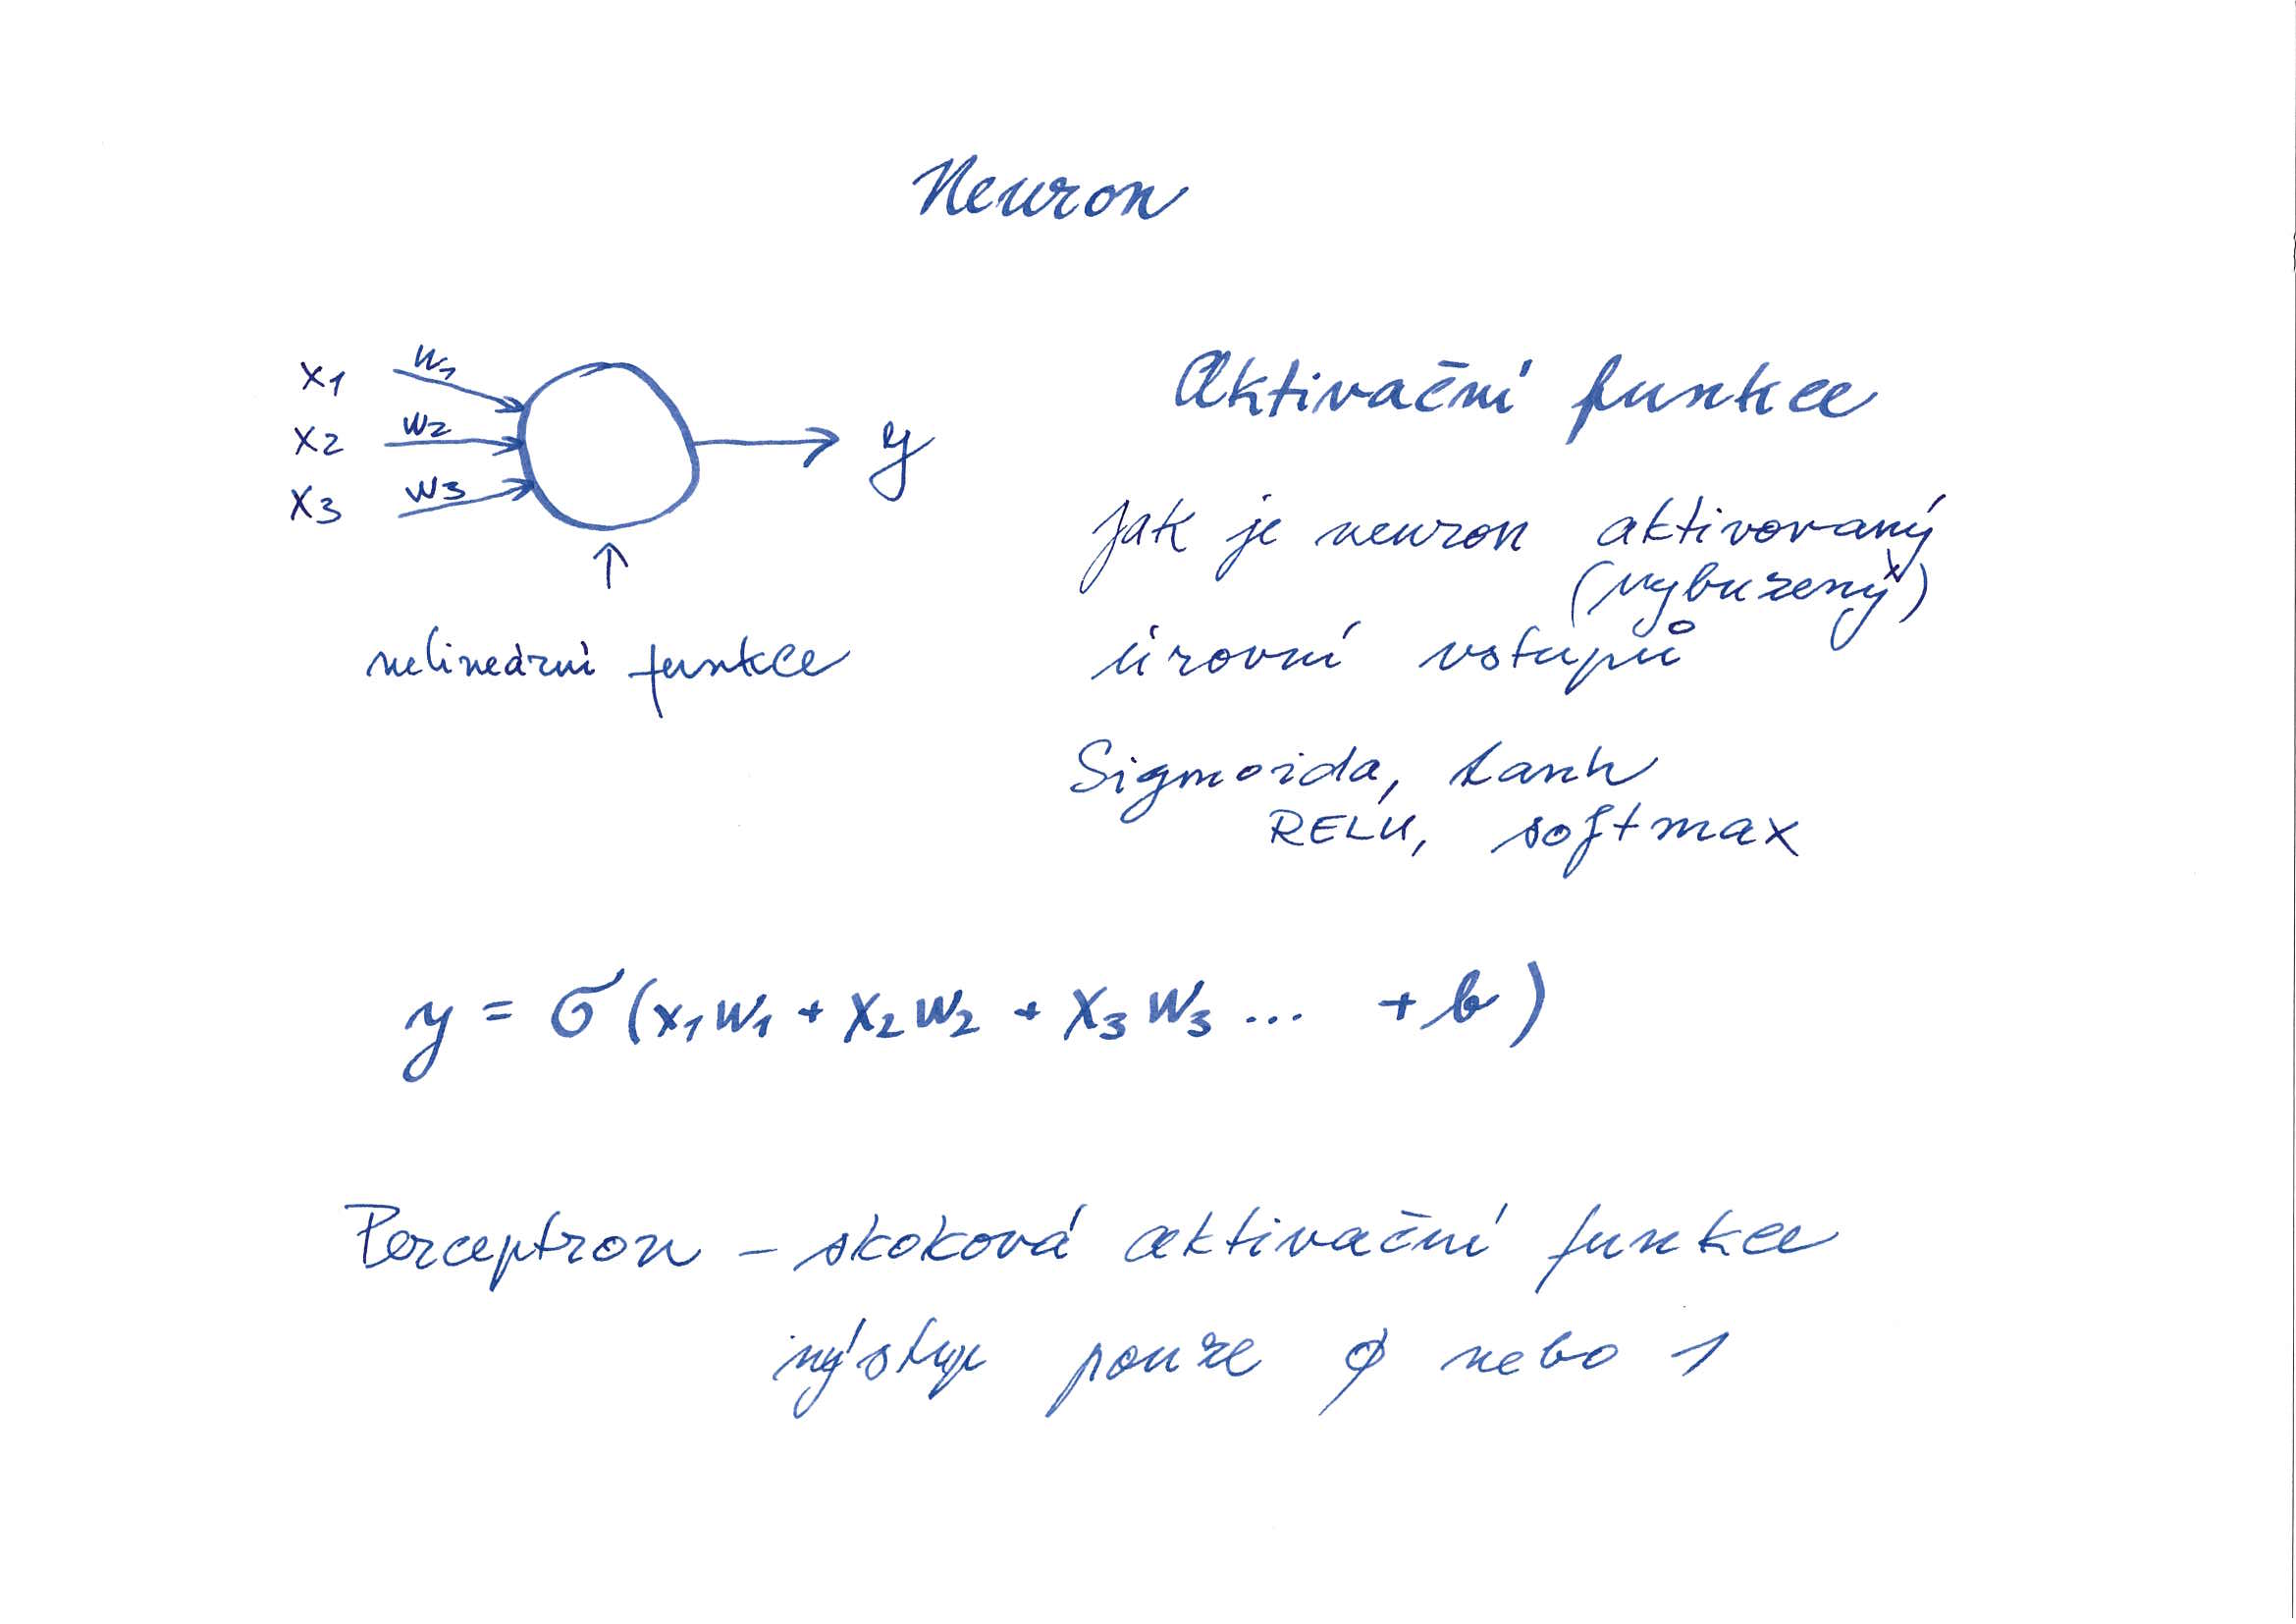 Neuron
x1 w1
x2 w2
x3 w3
y
nelineární funkce
Aktivační funkce
Jak je neuron aktivovaný
(vybuzený)
úrovní vstupů
Sigmoida, tanh
RELU, softmax
y = σ (x1 w1 + x2 w2 + x3 w3 ... + b)
Perceptron – skoková aktivační funkce
výstup pouze 0 nebo 1